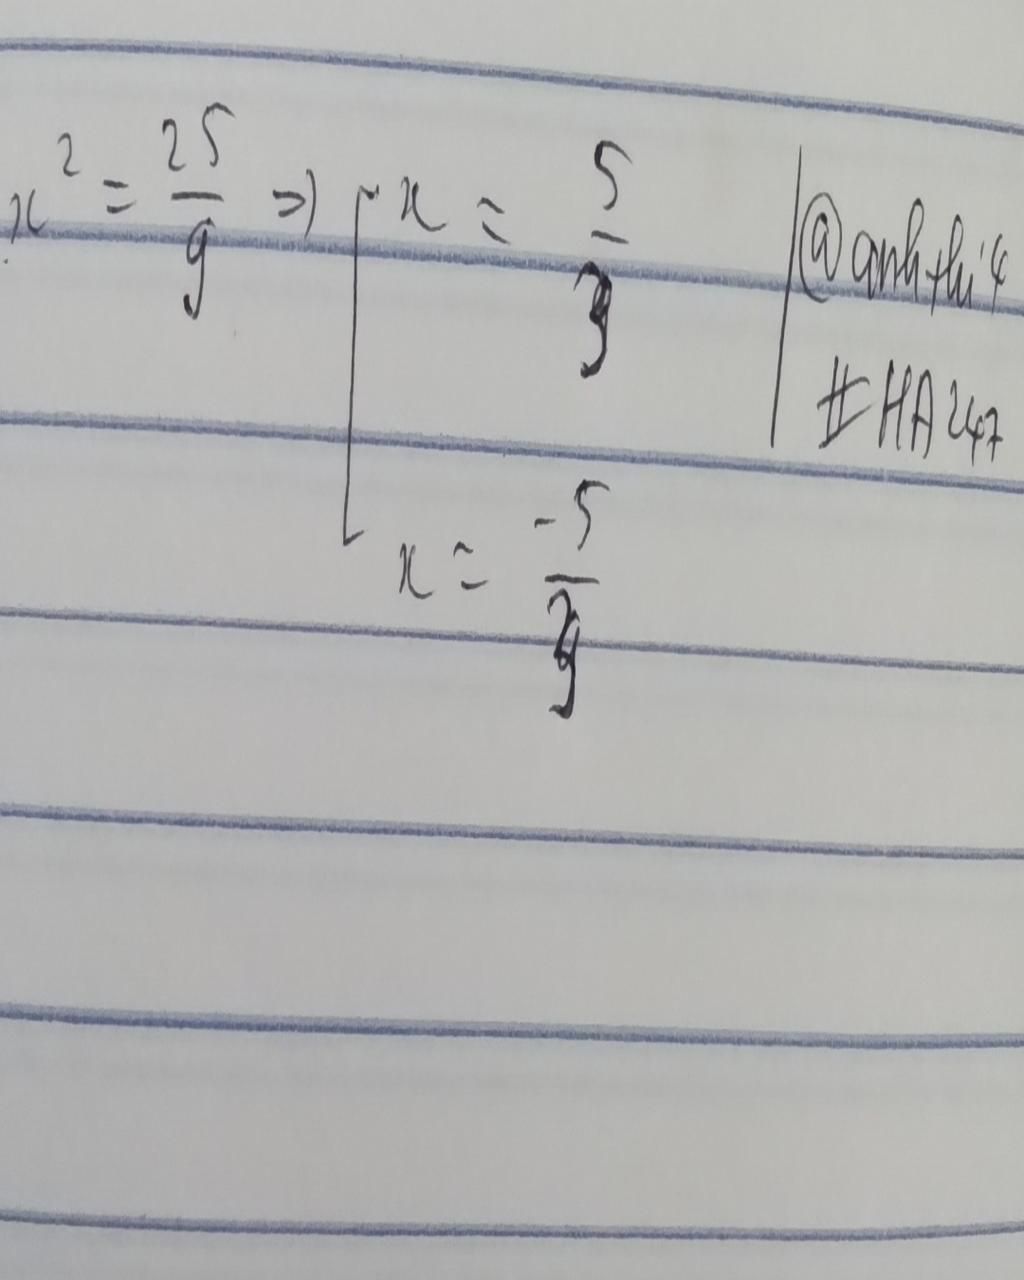 x² = 25/9 => [ x = 5/3
x = -5/3
@anhthi4
#HA247